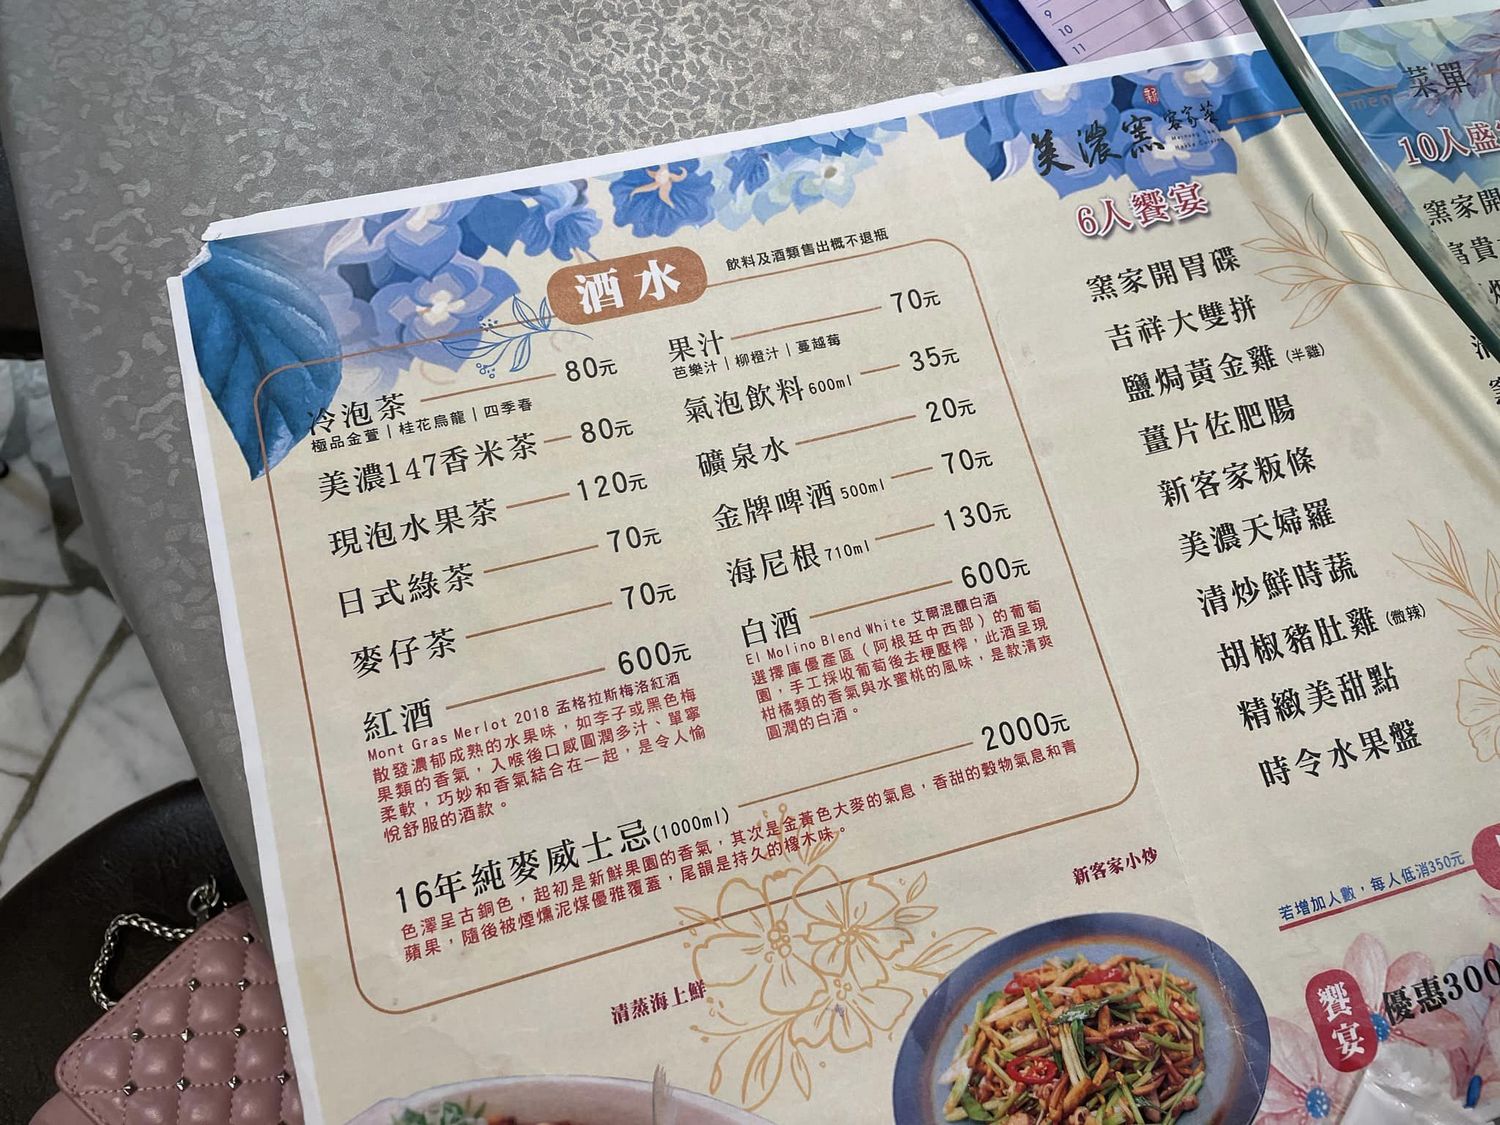 9
10
11
酒水
飲料及酒類售出概不退瓶
冷泡茶 80元
極品金萱 | 桂花烏龍 | 四季春
美濃147香米茶 80元
現泡水果茶 120元
日式綠茶 70元
麥仔茶 70元
紅酒 600元
Mont Gras Merlot 2018 孟格拉斯梅洛紅酒
散發濃郁成熟的水果味，如李子或黑色梅
果類的香氣，入喉後口感圓潤多汁、單寧
柔軟，巧妙和香氣結合在一起，是令人愉
悅舒服的酒款。
果汁 70元
芭樂汁 | 柳橙汁 | 蔓越莓
氣泡飲料600ml 35元
礦泉水 20元
金牌啤酒500ml 70元
海尼根710ml 130元
白酒 600元
El Molino Blend White 艾爾混釀白酒
選擇庫優產區（阿根廷中西部）的葡萄
園，手工採收葡萄後去梗壓榨，此酒呈現
柑橘類的香氣與水蜜桃的風味，是款清爽
圓潤的白酒。
16年純麥威士忌(1000ml) 2000元
色澤呈古銅色，起初是新鮮果園的香氣，其次是金黃色大麥的氣息，香甜的穀物氣息和青
蘋果，隨後被煙燻泥煤優雅覆蓋，尾韻是持久的橡木味。
清蒸海上鮮
新客家小炒
新
美濃窯
客家菜
6人饗宴
窯家開胃碟
吉祥大雙拼
鹽焗黃金雞(半雞)
薑片佐肥腸
新客家粄條
美濃天婦羅
清炒鮮時蔬
胡椒豬肚雞(微辣)
精緻美甜點
時令水果盤
若增加人數，每人低消350元
饗宴
優惠300
menu
菜單
10人盛
窯家開
富貴